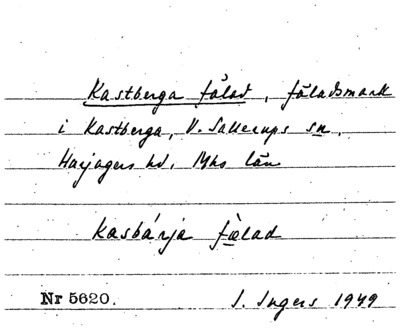 Kastberga fälad, fäladsmark
i Kastberga, V. Sallerups sn,
Harjagers hd, Mhs län
kasbárja fælad
Nr 5620. I. Ingers 1949